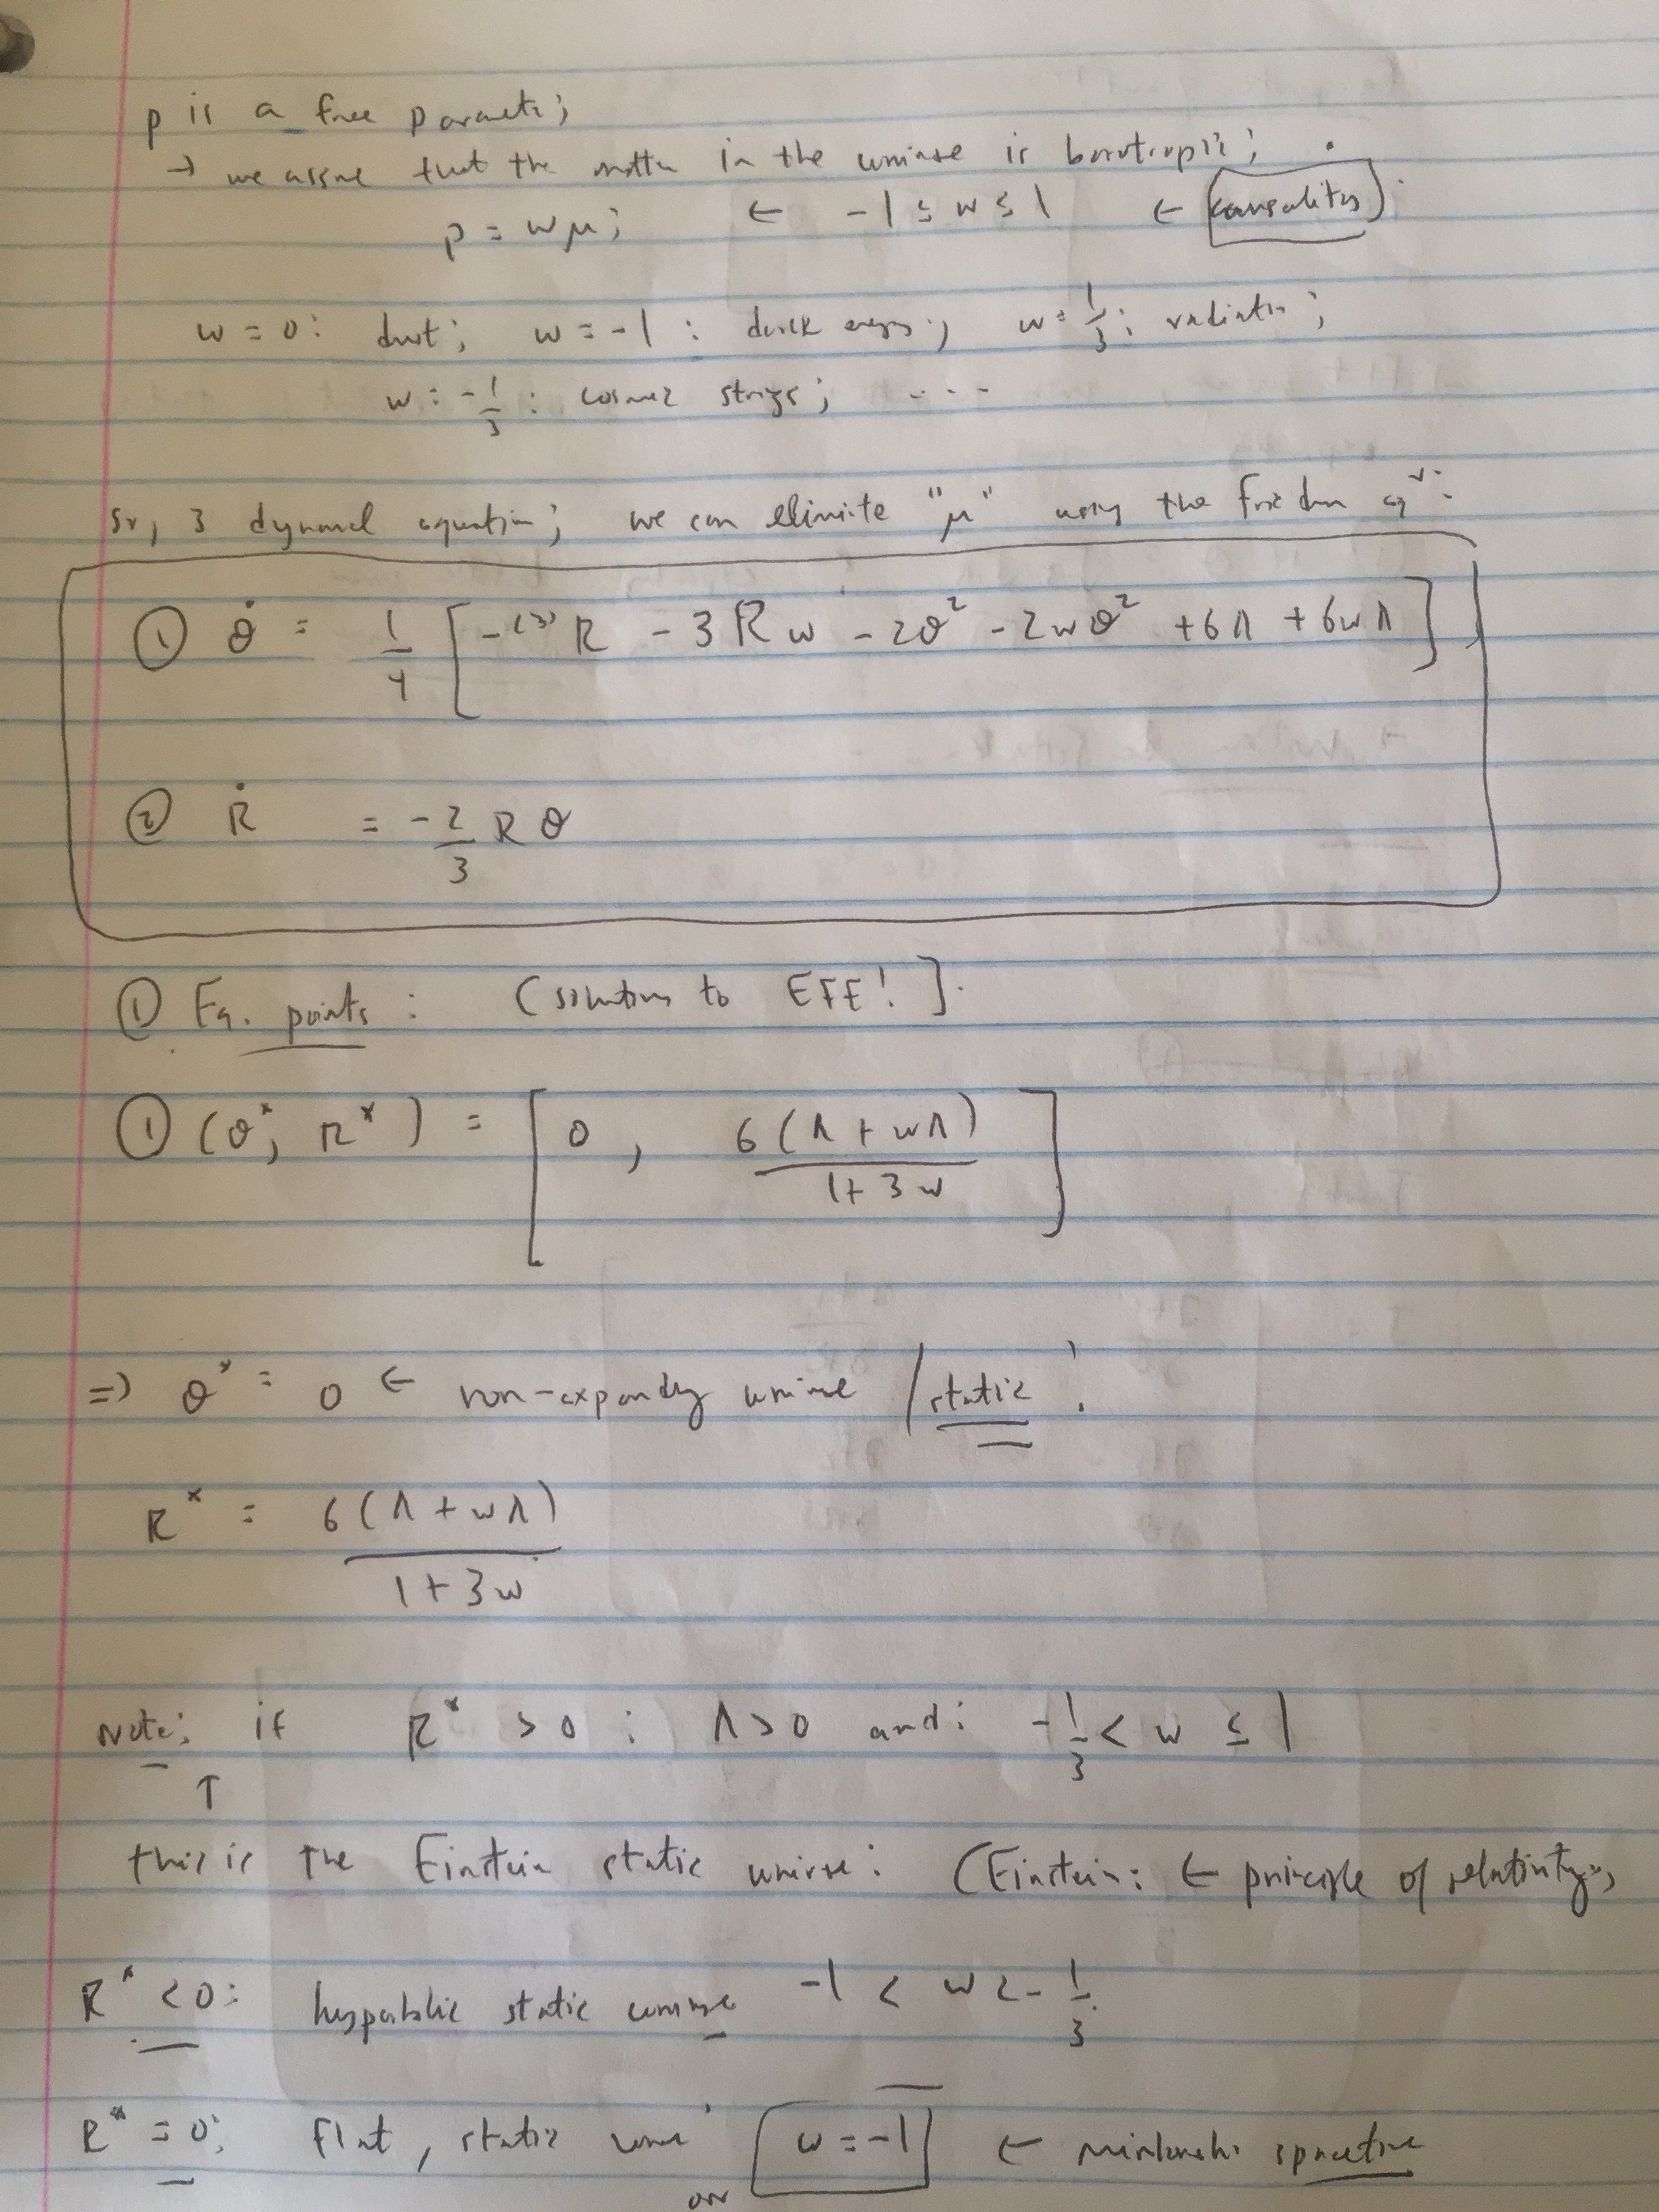 p is a free parameter;
→ we assume that the matter in the universe is barotropic;
p = wμ; ← -1 ≤ w ≤ 1 ← (causality).
w = 0: dust; w = -1: dark energy; w = 1/3: radiation;
w = -1/3: cosmic strings; ...
So, 3 dynamical equations; we can eliminate "μ" using the Friedman eqn:
① θ̇ = 1/4 [-⁽³⁾R - 3Rw - 2θ² - 2wθ² + 6Λ + 6wΛ]
② Ṙ = -2/3 Rθ
① Eq. points: (solutions to EFE!].
① (θ*, R*) = [0, 6(Λ + wΛ)/(1 + 3w)]
=> θ* = 0 ← non-expanding universe / static!
R* = 6(Λ + wΛ)/(1 + 3w)
Note: if R* > 0: Λ > 0 and: -1/3 < w ≤ 1
↑
this is the Einstein static universe: (Einstein: ← principle of relativity,
R* < 0: hyperbolic static universe -1 < w < -1/3
R* = 0: flat, static universe w = -1 ← Minkowski spacetime
or